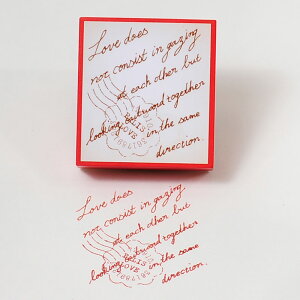 Love does
not consist in gazing
at each other but
looking outward together
in the same
direction.
LOVE
Love does
not consist in gazing
at each other but
looking outward together
in the same
direction.
LOVE